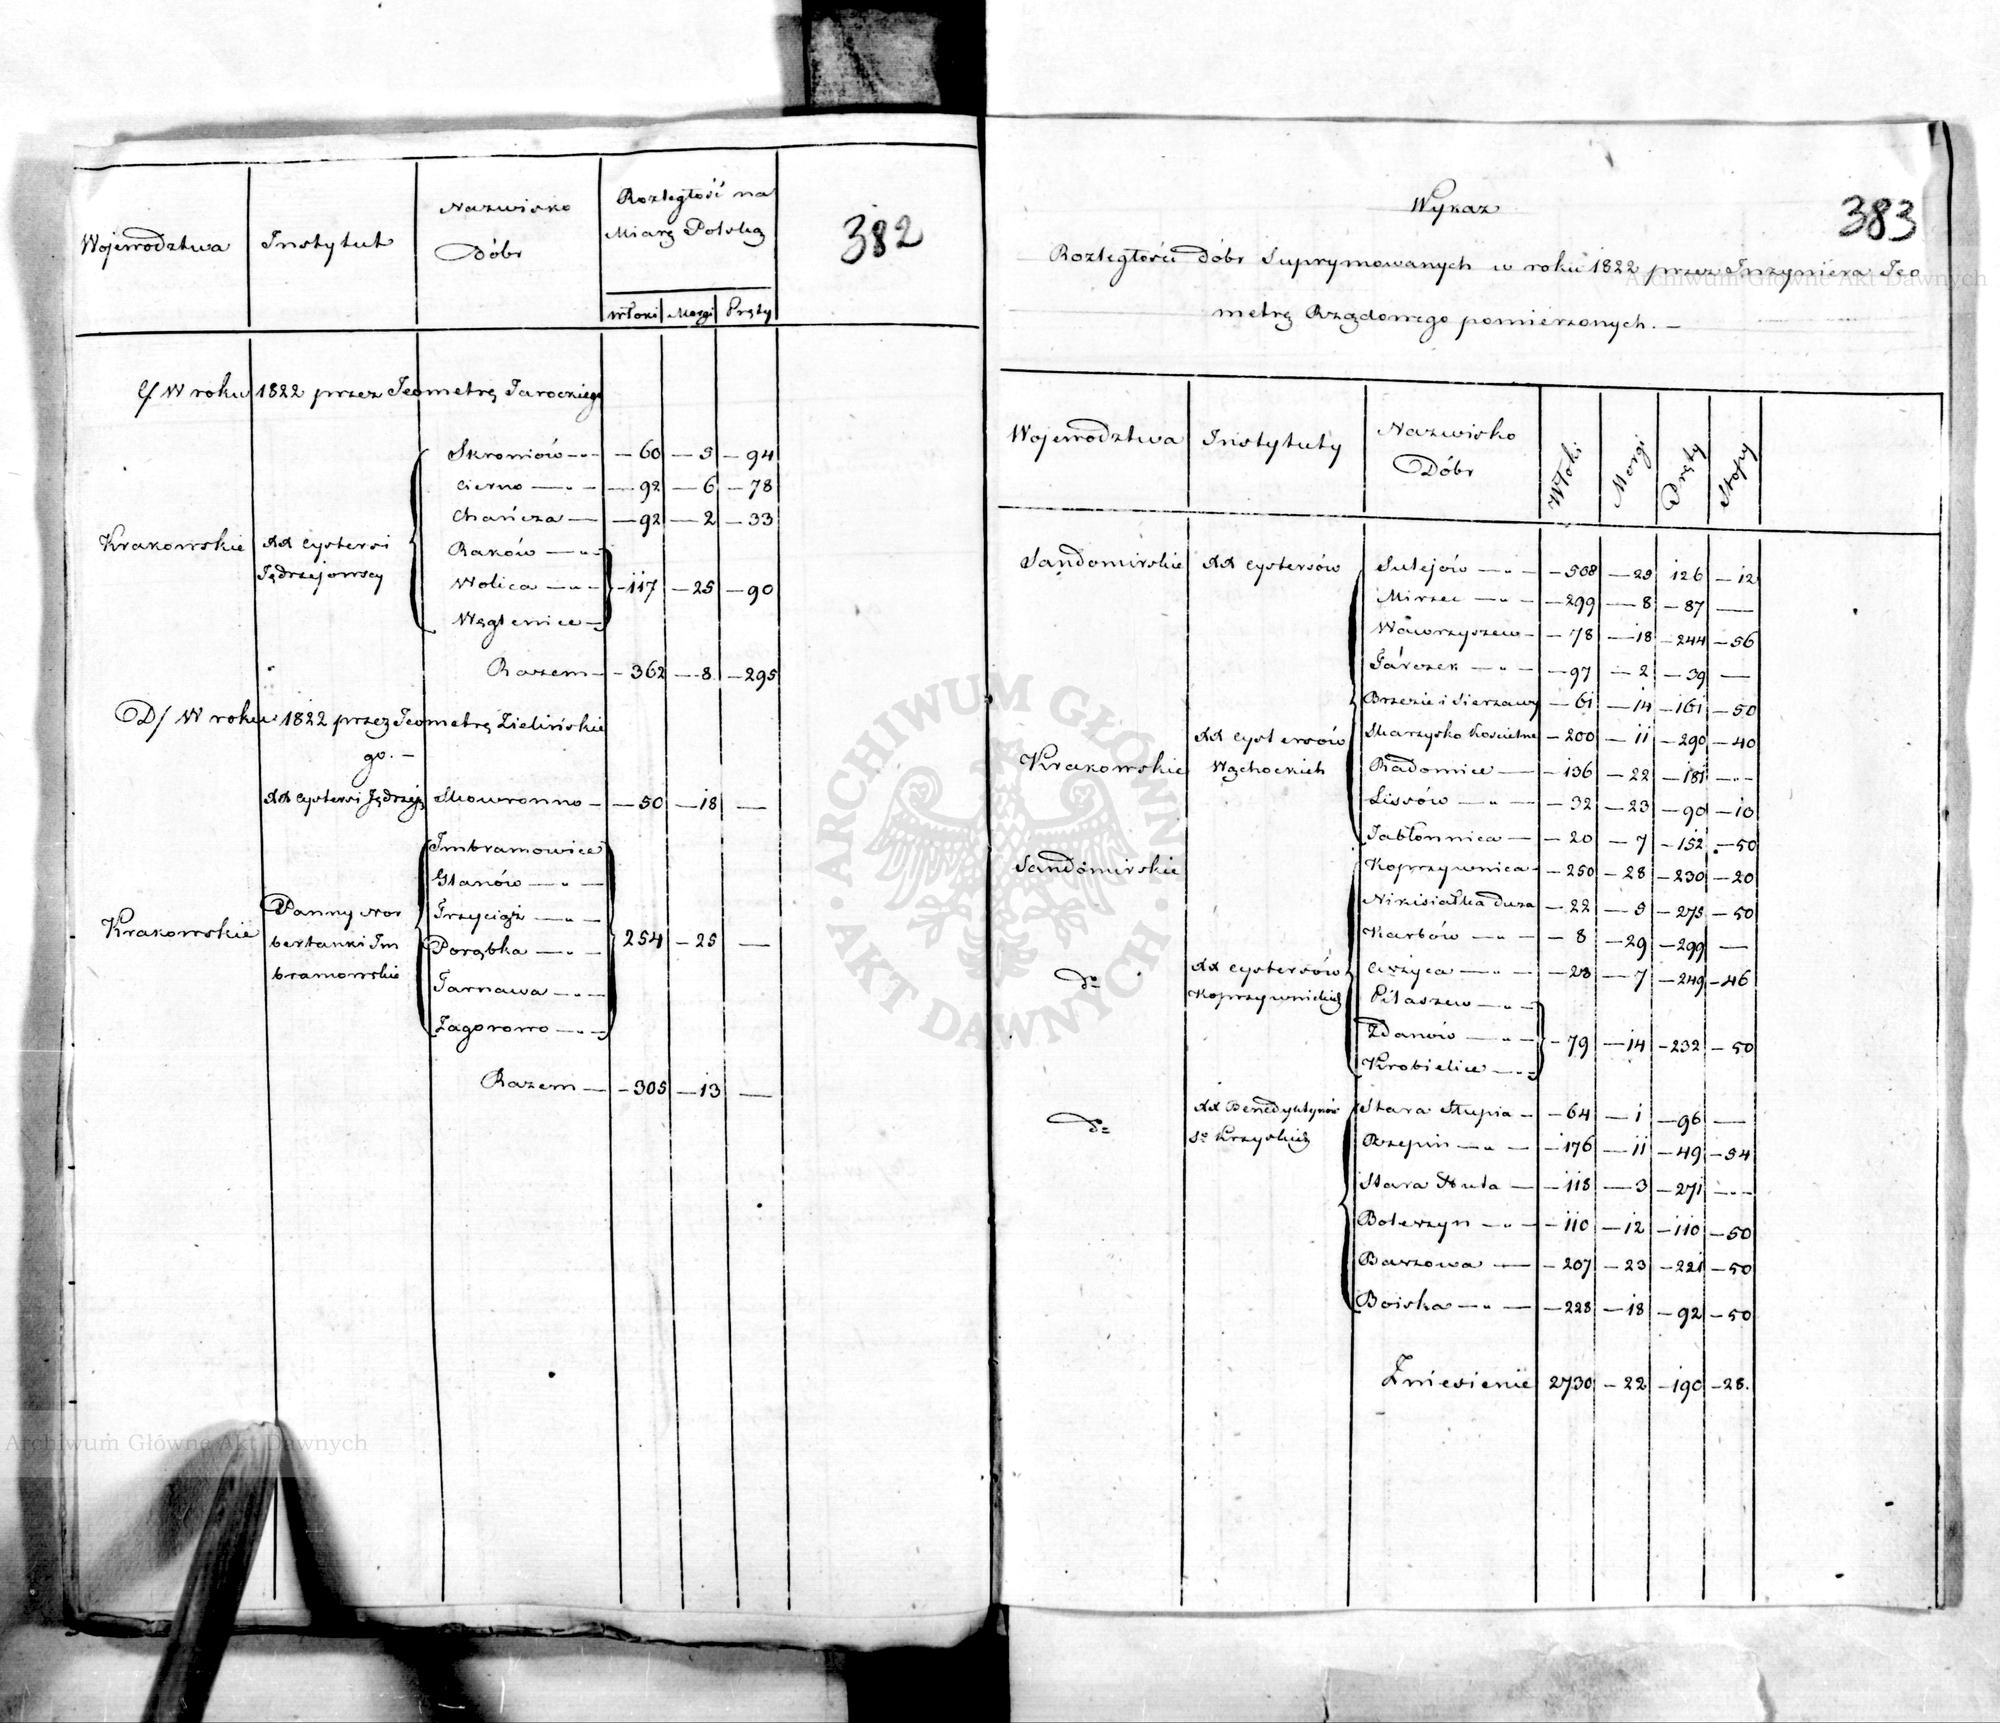 382
Województwa Instytut Nazwisko Dóbr Rozległość na Miarę Polską
Włoki Morgi Pręty
C/ W roku 1822 przez Jeometrę Jarockiego
Skroniów — 60 — 5 — 94
Cierno — 92 — 6 — 78
Chańcza — 92 — 2 — 33
Krakowskie XX Cystersi Raków
Jędrzejowscy Wolica — 117 — 25 — 90
Węgleniec
Razem — 362 — 8 — 295
D/ W roku 1822 przez Jeometrę Zielińskie
go. —
XX Cystersi Jędrzej Skowronno — 50 — 18 —
Imbramowice
Glanów
Krakowskie Panny Nor Trzyciąż
bertanki Im Porąbka 254 — 25 —
bramowskie Tarnawa
Zagorowo
Razem — 305 — 13 —
383
Wykaz
Rozległości Dóbr Suprymowanych w roku 1822 przez Inżyniera Jeo
metrę Rządowego pomierzonych. —
Województwa Instytuty Nazwisko Dóbr Włoki Morgi Pręty Stopy
Sandomirskie XX Cystersów Sulejów — 508 — 29 126 — 12
Mirzec — 299 — 8 — 87 —
Wawrzyszew — 78 — 18 — 244 — 56
Tárczek — 97 — 2 — 39 —
Brzezie i Sierzawy — 61 — 14 — 161 — 50
XX Cystersów Skarzysko Koscielne — 200 — 11 — 290 — 40
Krakowskie Wąchockich Radomice — 136 — 22 — 181 —
Lissów — 32 — 23 — 90 — 10
Jabłonnica — 20 — 7 — 152 — 50
Sandomirskie Koprzywnica — 250 — 28 — 230 — 20
Nikisiałka Duza — 22 — 5 — 275 — 50
Karbów — 8 — 29 — 299 —
do XX Cystersów Ciszyca — 28 — 7 — 249 — 46
Koprzywnickich Pilaszew
Zdanów — 79 — 14 — 232 — 50
Krobielice
do XX Benedyktynów Stara Słupia — 64 — 1 — 96 —
So Krzyskich Rzepin — 176 — 11 — 49 — 54
Stara Huta — 118 — 3 — 271 —
Boleszyn — 110 — 12 — 110 — 50
Barzowa — 207 — 23 — 221 — 50
Boiska — 228 — 18 — 92 — 50
Zniesienie 2730 — 22 — 190 — 28.
ARCHIWUM GŁÓWNE
AKT DAWNYCH
Archiwum Główne Akt Dawnych
Archiwum Główne Akt Dawnych